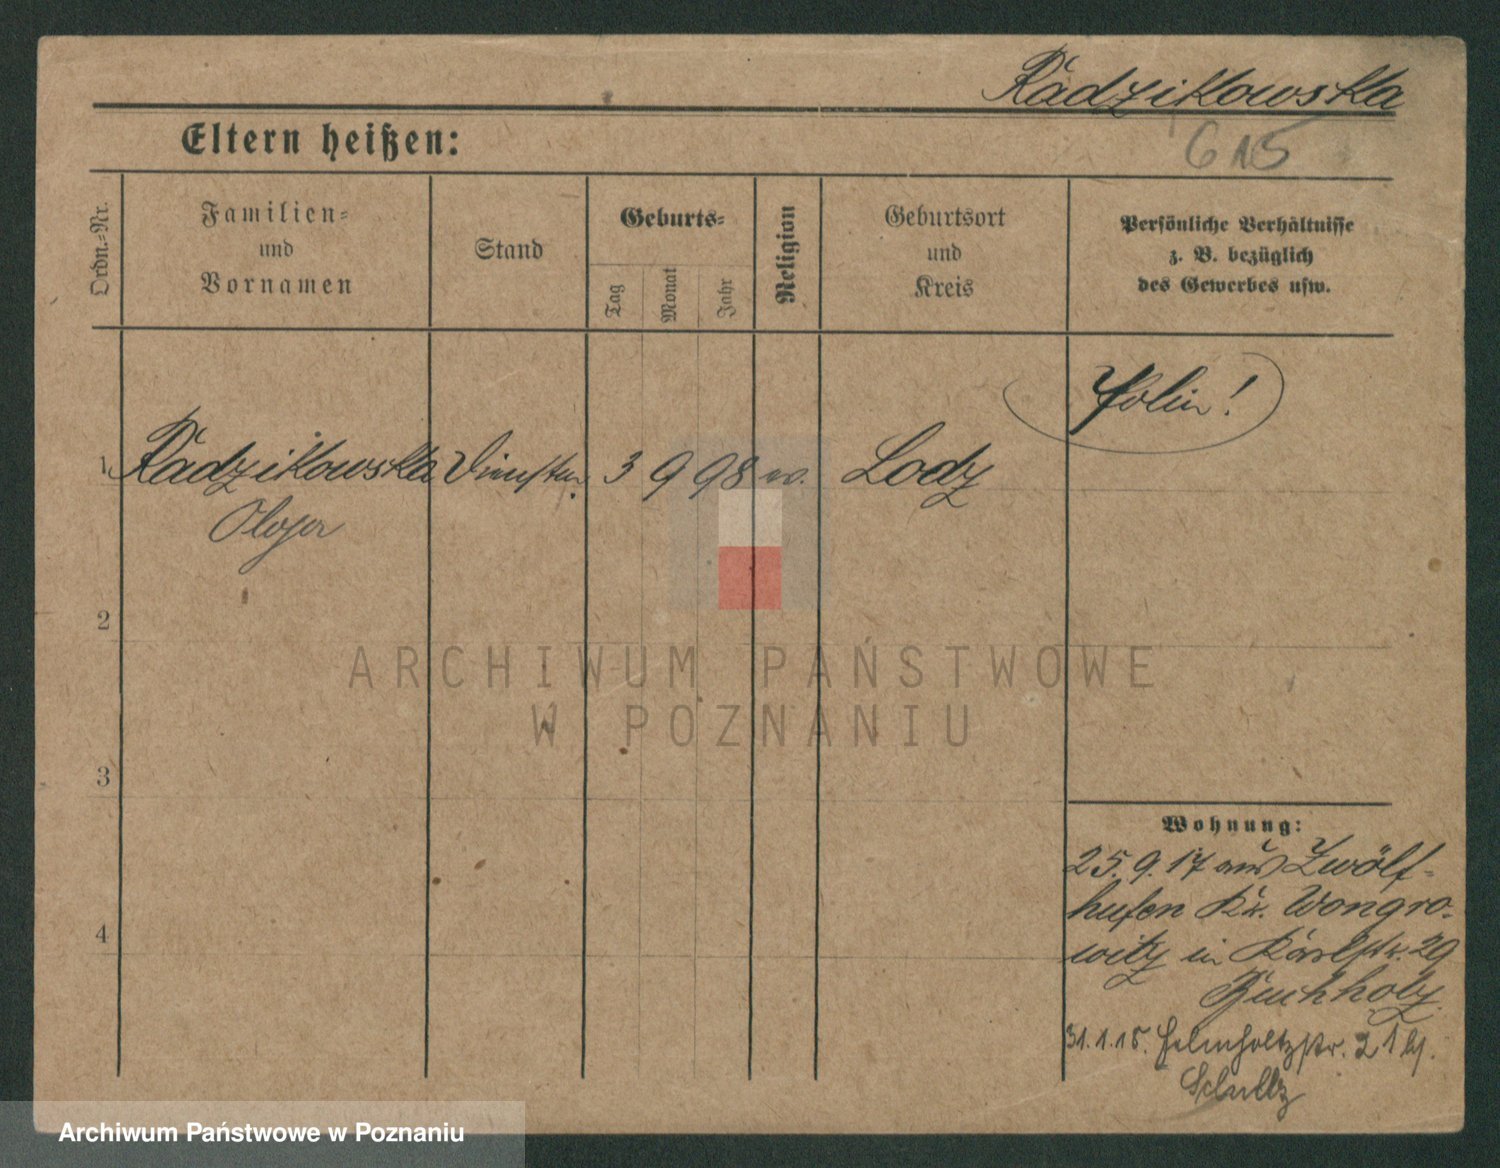 Radzikowska
Eltern heißen:
Ordn.=Nr.
Familien=
und
Vornamen
Stand
Geburts=
Tag
Monat
Jahr
Religion
Geburtsort
und
Kreis
Persönliche Verhältnisse
z. B. bezüglich
des Gewerbes usw.
Polin!
1 Radzikowska 3 9 98 Lodz
2
3
4
ARCHIWUM PAŃSTWOWE
W POZNANIU
Wohnung:
25. 9. 17 aus Zwölf=
hufen Kr. Wongro=
witz in Karlstr. 29
Buchholz.
31.1.18. Helmholtzstr. 21 bj.
Schultz
Archiwum Państwowe w Poznaniu